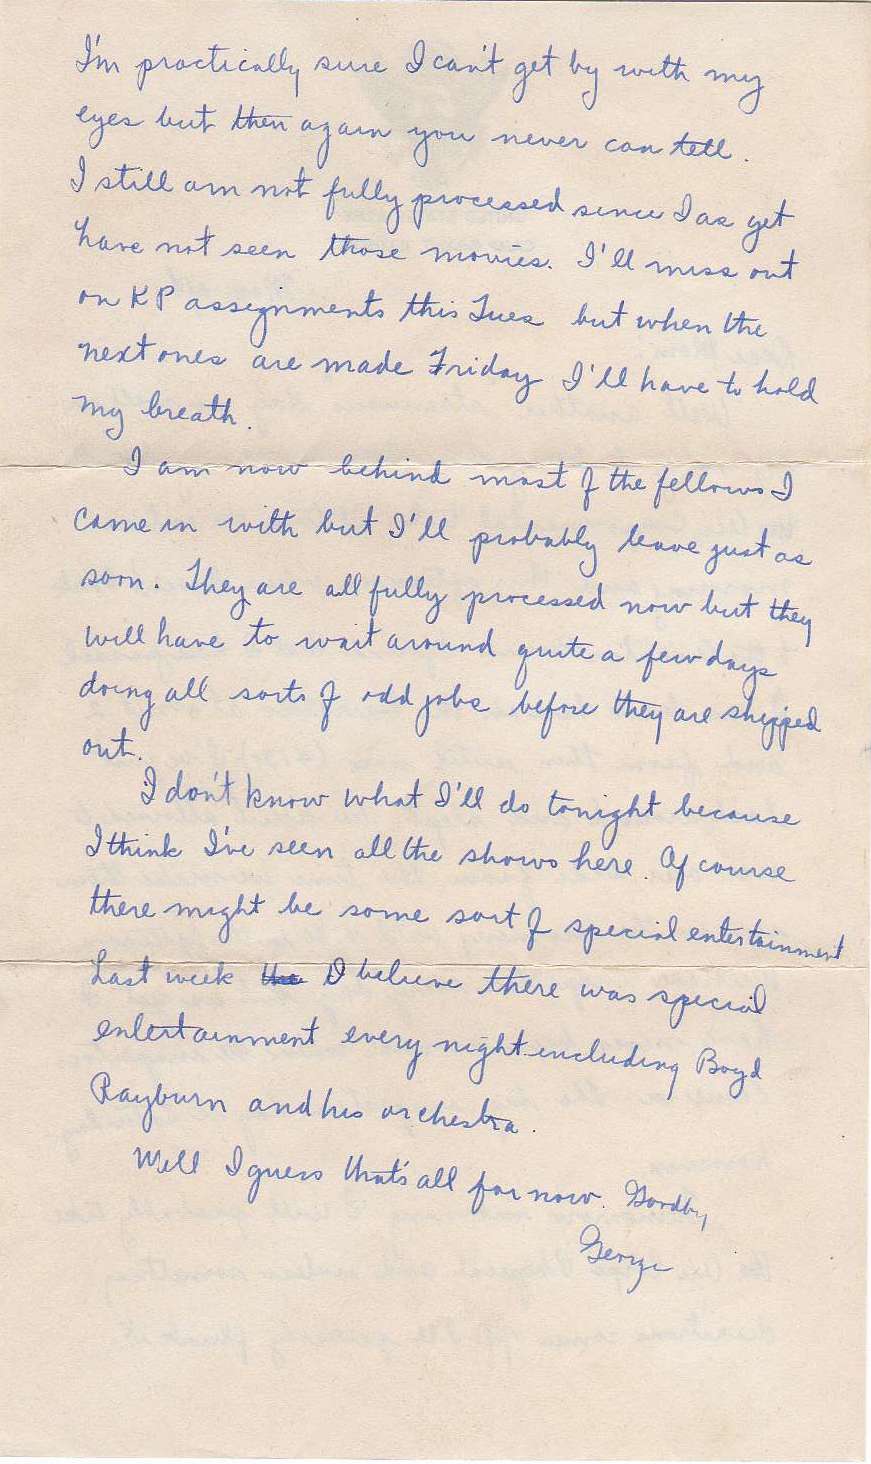 I'm practically sure I can't get by with my
eyes but then again you never can tell.
I still am not fully processed since I as yet
have not seen those movies. I'll miss out
on KP assignments this Tues but when the
next ones are made Friday I'll have to hold
my breath.
I am now behind most of the fellows I
came in with but I'll probably leave just as
soon. They are all fully processed now but they
will have to wait around quite a few days
doing all sorts of odd jobs before they are shipped
out.
I don't know what I'll do tonight because
I think I've seen all the shows here. Of course
there might be some sort of special entertainment
Last week the I believe there was special
entertainment every night including Boyd
Rayburn and his orchestra.
Well I guess that's all for now. Goodby,
George